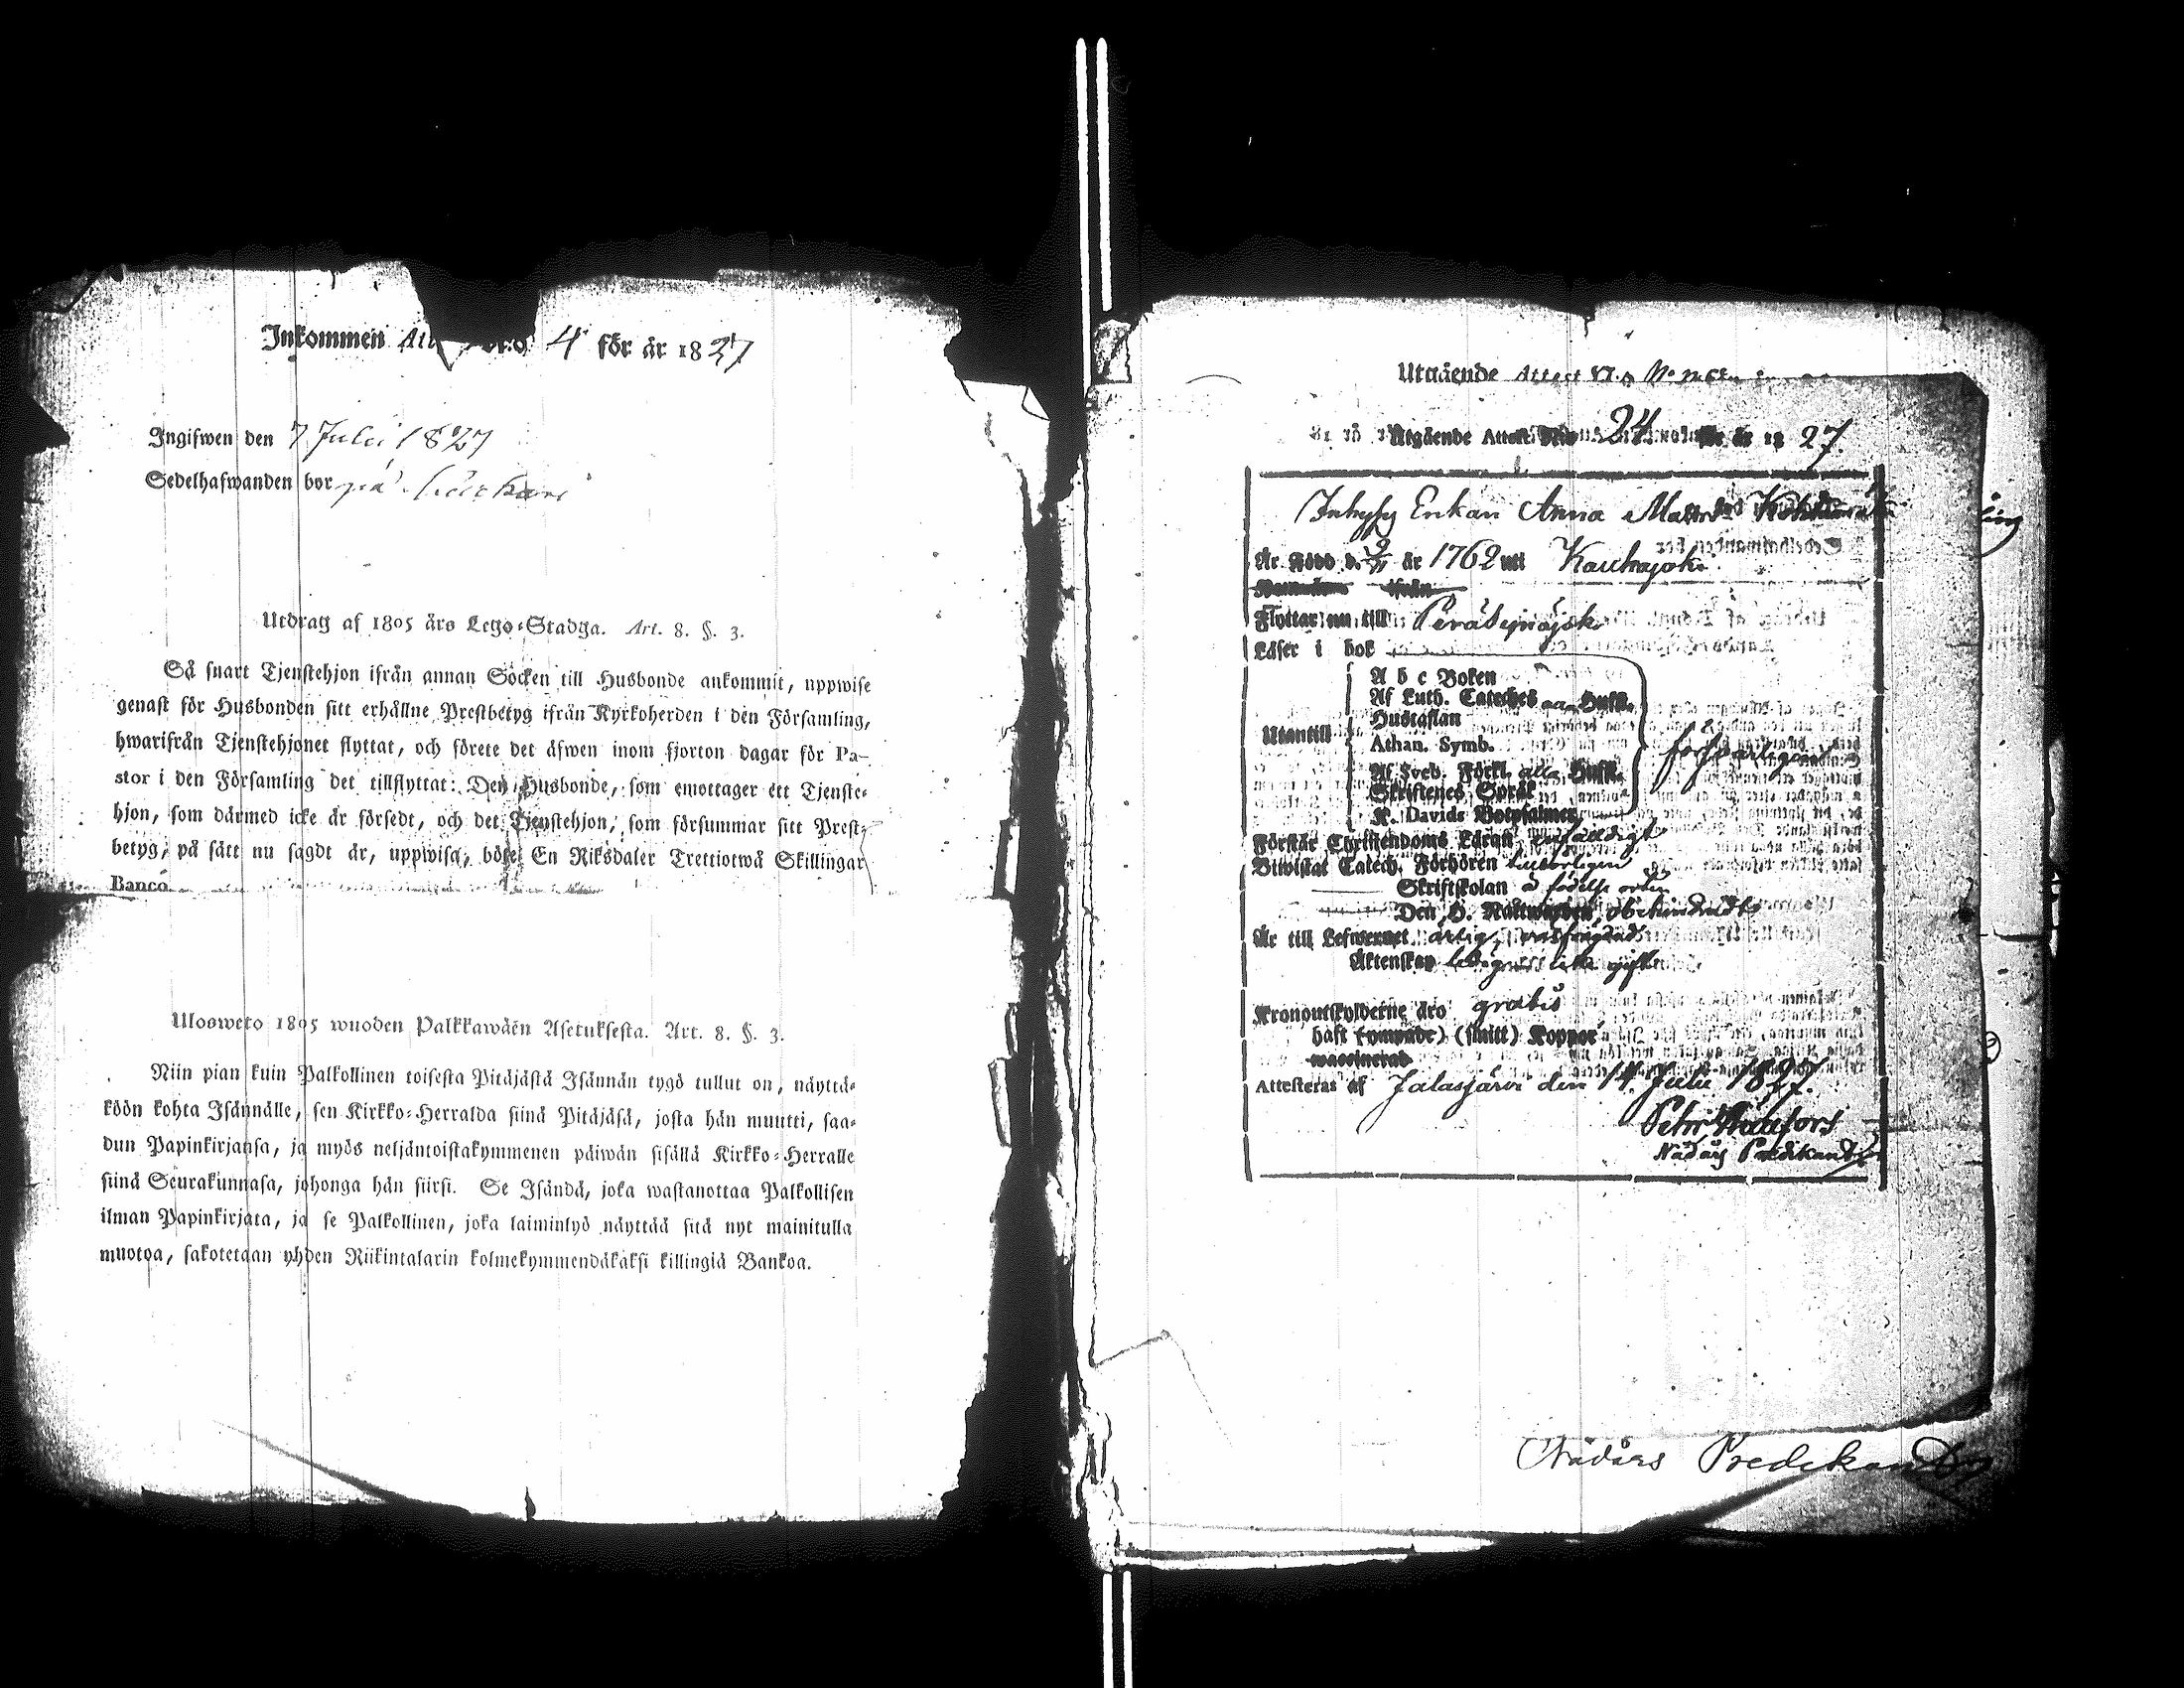 Inkommen Att N:o 4 för år 1827
Ingifwen den 7 Julii 1827
Sedelhafwanden bor på
Utdrag af 1805 års Lego-Stadga. Art. 8. §. 3.
Så snart Tjenstehjon ifrån annan Socken till Husbonde ankommit, uppwise
genast för Husbonden sitt erhållne Prestbetyg ifrån Kyrkoherden i den Församling,
hwarifrån Tjenstehjonet flyttat, och förete det äfwen inom fjorton dagar för Pa-
stor i den Församling det tillflyttat: Den Husbonde, som emottager ett Tjenste-
hjon, som därmed icke är försedt, och det Tjenstehjon, som försummar sitt Prest-
betyg, på sätt nu sagdt är, uppwisa, böte En Riksdaler Trettiotwå Skillingar
Banco.
Uloswето 1805 wuoden Palkkawäen Asetuksesta. Art. 8. §. 3.
Niin pian kuin Palkollinen toisesta Pitäjästä Isännän tygö tullut on, näyttä-
köön kohta Isännälle, sen Kirkko-Herralda siinä Pitäjäsä, josta hän muutti, saa-
dun Papinkirjansa, ja myös neljäntoistakymmenen päiwän sisällä Kirkko-Herralle
siinä Seurakunnasa, johonga hän siirsi. Se Isändä, joka wastanottaa Palkollisen
ilman Papinkirjata, ja se Palkollinen, joka laiminlyö näyttää sitä nyt mainitulla
muotoa, sakotetaan yhden Riikintalarin kolmekymmendäkaksi killingiä Bankoa.
Utgående Attest N:o
Utgående Attest N:o 24 för år 1827.
Enkan Anna Matts
Är Född d. år 1762 uti Kauhajoki
Kommen ifrån
Flyttar nu till Peräseinäjoki
Läser i bok
Utantill
A b c Boken
Af Luth. Cateches Hufst.
Hustaflan
Athan. Symb.
Af Sveb. Förkl. alla Hufst.
Skriftenes Språk
K. Davids Botpsalmer
försvarligen
Förstår Christendoms Läran enfaldigt
Biwistat Catech. Förhören
Skriftskolan å födelse orten
Den H. Nattwarden obehindradt
Är till Lefwernet ärlig,
Äktenskap
Kronoutskylderne äro gratis
haft (ympade) (smitt) Koppor
waccinerad
Attesteras af Jalasjärvi den 14 Julii 1827.
Nådårs Predikant
Nådårs Predikant